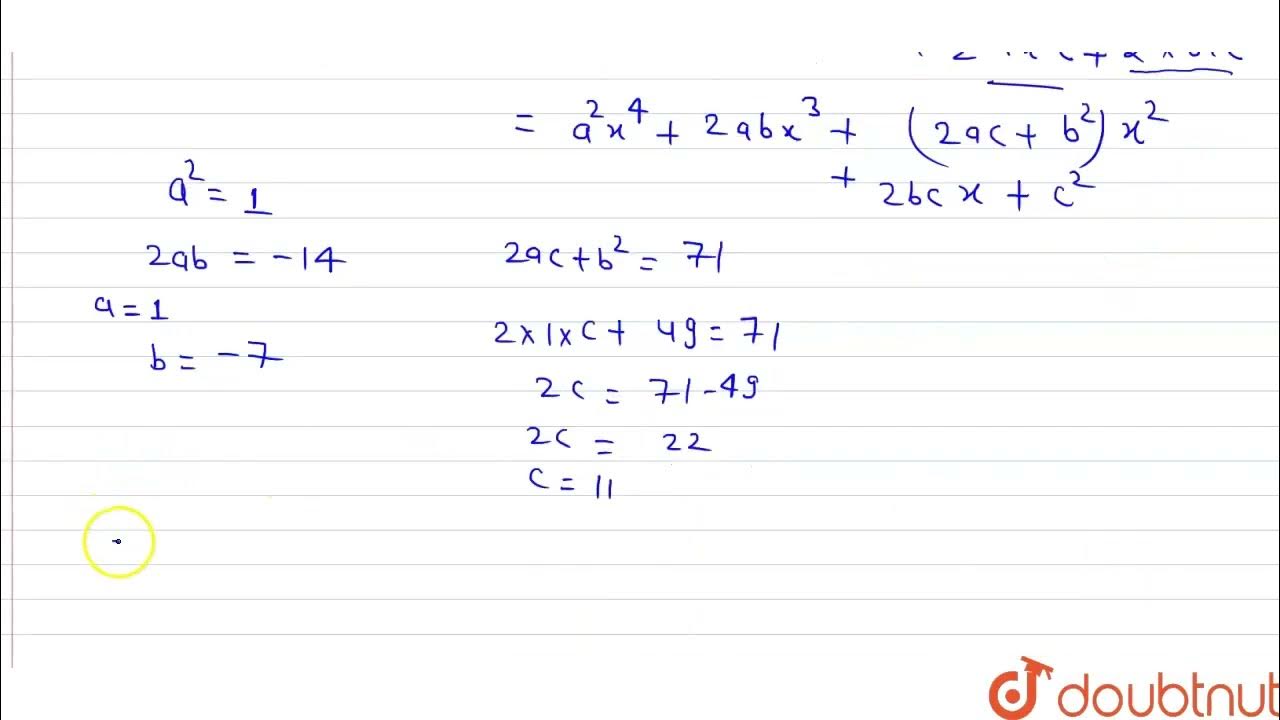 = a²x⁴ + 2abx³ + (2ac + b²) x²
+ 2bcx + c²
a² = 1
2ab = -14
a = 1
b = -7
2ac + b² = 71
2×1×c + 49 = 71
2c = 71-49
2c = 22
c = 11
doubtnut